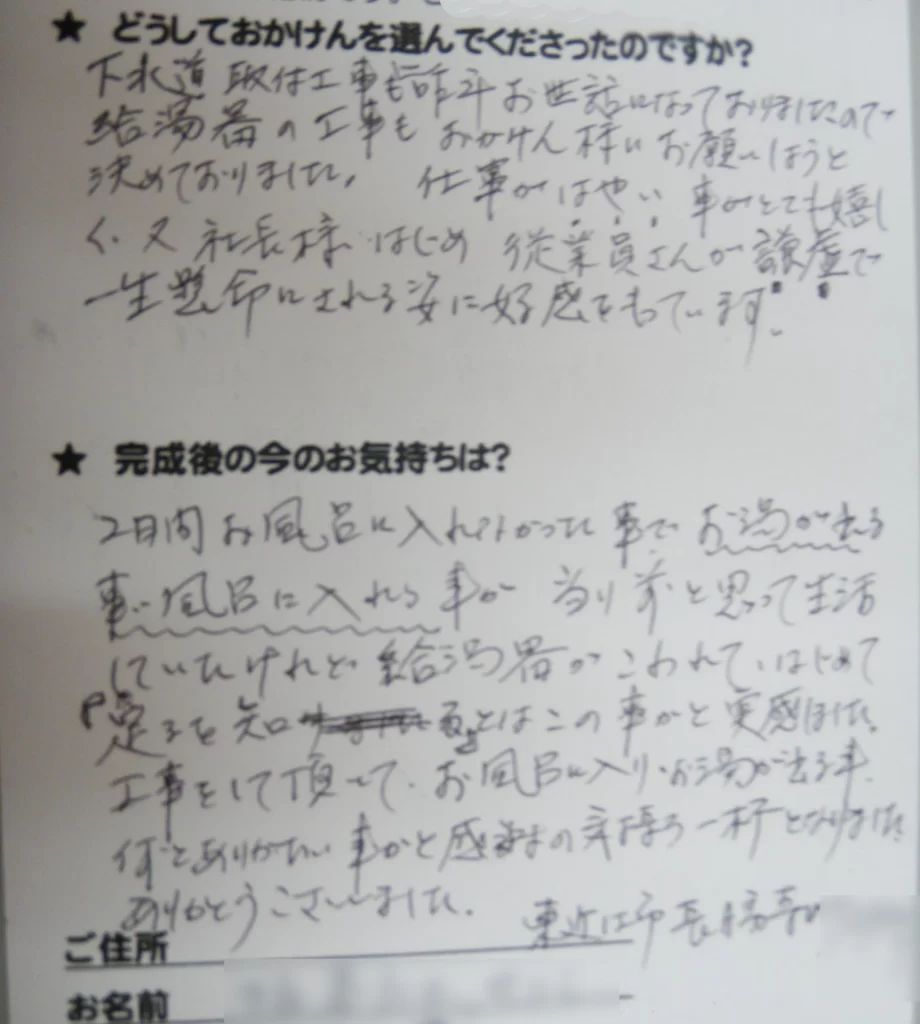 ★ どうしておかけんを選んでくださったのですか?
下水道取付工事も昨年お世話になっておりましたので
給湯器の工事もおかけん様にお願いしようと
決めておりました。仕事がはやい事がとても嬉し
く、又社長様はじめ従業員さんが謙虚で
一生懸命にされる姿に好感をもています。
★ 完成後の今のお気持ちは?
2日間お風呂に入れなかった事でお湯が出る
事、風呂に入れる事が当り前と思って生活
していたけれど給湯器がこわれて、はじめて
足るを知るとはこの事かと実感しました。
工事をして頂いて、お風呂に入り、お湯が出る事、
何とありがたい事かと感謝の気持ち一杯となりました
ありがとうございました。
東近江市長勝寺町
ご住所
お名前